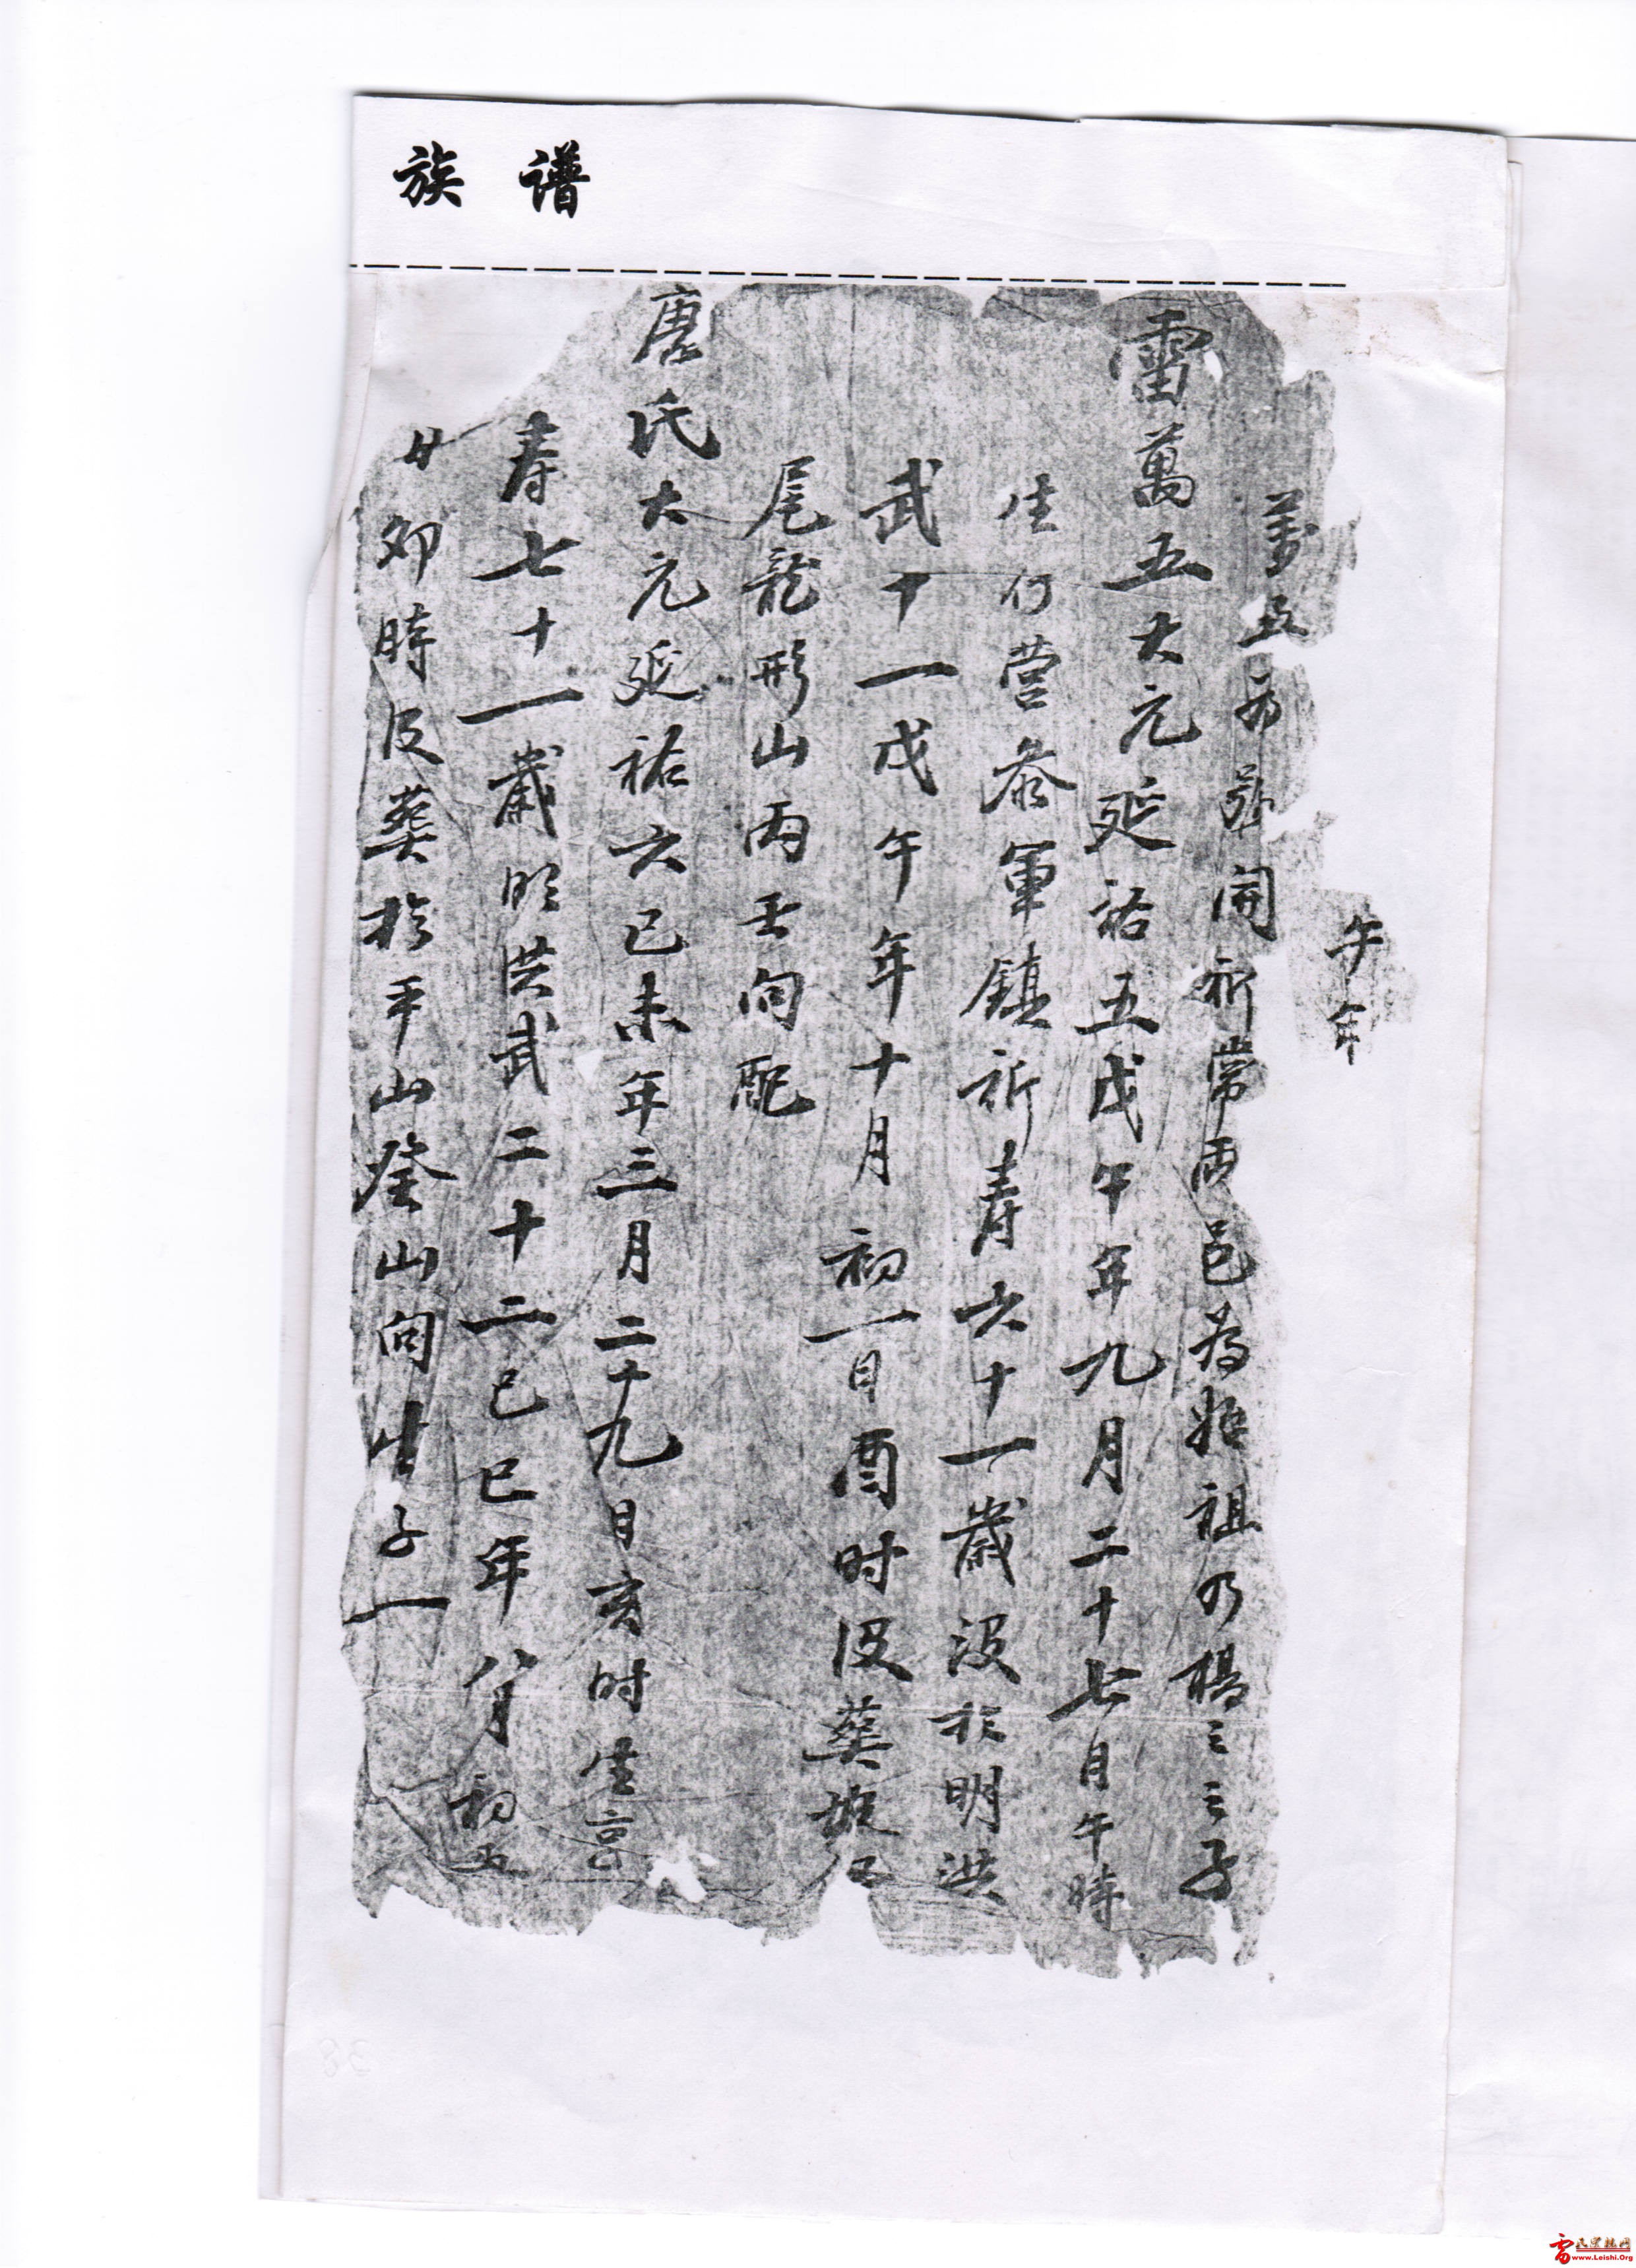 族 谱
午年
萬五 開祁常两邑为始祖乃楊三之子
雷萬五大元延祐五戊午年九月二十七日午時
生行营叅軍鎮祈寿六十一歲没於明洪
武十一戊午年十月初一日酉时没葵
尾龍形山丙壬向配
唐氏大元延祐六己未年三月二十九日亥时生享
寿七十一歲明洪武二十二己巳年八月初五
廿卯時没葵於平山癸山向生子一
雷
www.Leishi.Org